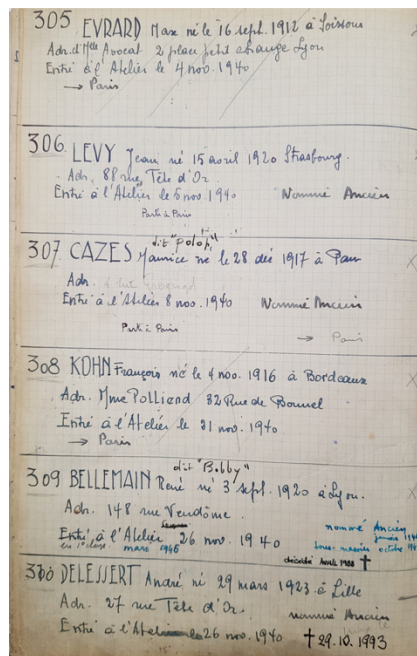 305 EVRARD Max né le 16 sept. 1912 à Soissons
Adr. d'Mlle Avocat 2 place petit change Lyon
Entré à l'Atelier le 4 nov. 1940
→ Paris
306 LEVY Jean né 15 avril 1920 Strasbourg.
Adr. 88 rue Tête d'Or.
Entré à l'Atelier le 5 nov 1940 Nommé Ancien
Parti à Paris
dit "Polop"
307 CAZES Maurice né le 28 déc 1917 à Pau
Adr.
Entré à l'Atelier 8 nov. 1940 Nommé Ancien
Parti à Paris → Paris
308 KOHN François né le 4 nov. 1916 à Bordeaux
Adr. Mme Palliard 32 Rue de Bonnel
Entré à l'Atelier le 21 nov. 1940
→ Paris
dit "Bobby"
309 BELLEMAIN René né 3 sept. 1920 à Lyon.
Adr. 148 rue Vendôme.
Entré à l'Atelier 26 nov. 1940 nommé Ancien
en 1e classe mars 1946 janvier
Sous-massier octobre
décédé Avril 1988 †
310 DELESSERT André né 29 mars 1923 à Lille
Adr. 27 rue Tête d'Or. nommé Ancien
Entré à l'Atelier 26 nov. 1940 † 29.10.1993